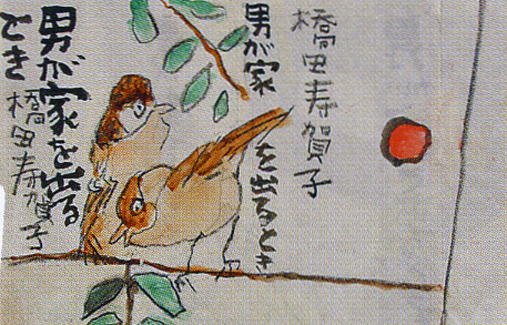 橋田寿賀子
男が家を出るとき
男が家を出る
とき 橋田寿賀子